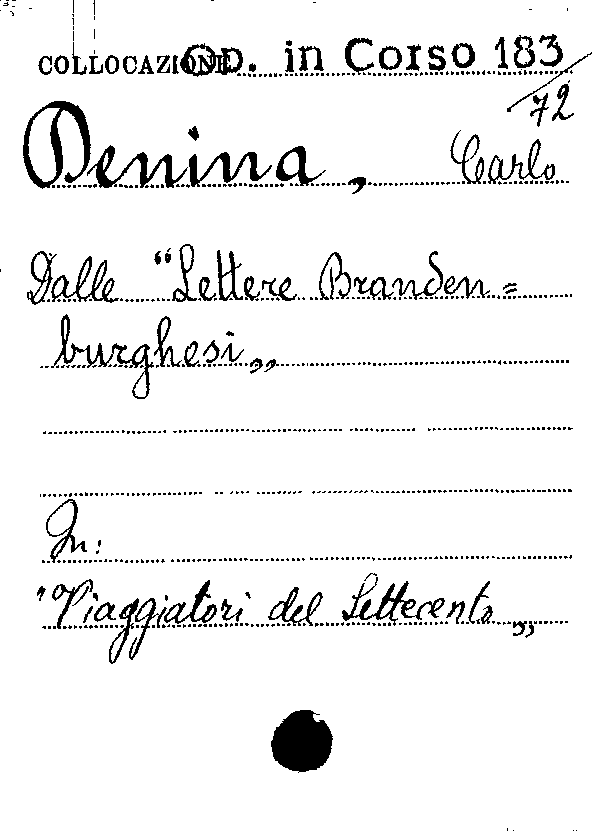 COLLOCAZIONE OD. in Corso 183
/72
Denina, Carlo
Dalle "Lettere Branden=
burghesi„
In:
"Viaggiatori del Settecento„